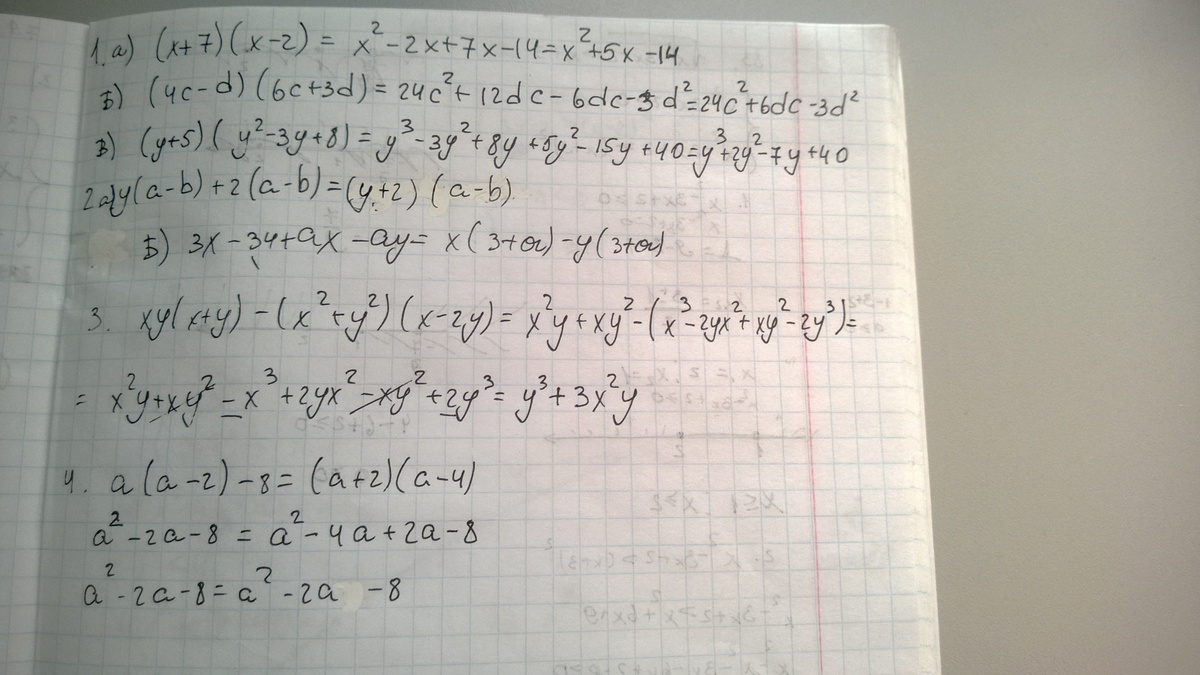 1. а) (x+7)(x-2) = x²-2x+7x-14=x²+5x-14
Б) (4c-d)(6c+3d)=24c²+12dc-6dc-3d²=24c²+6dc-3d²
В) (y+5)(y²-3y+8)=y³-3y²+8y+5y²-15y+40=y³+2y²-7y+40
2 а) y(a-b)+2(a-b)=(y+2)(a-b)
Б) 3x-3y+ax-ay= x(3+a)-y(3+a)
3. xy(x+y)-(x²+y²)(x-2y)= x²y+xy²-(x³-2yx²+xy²-2y³)=
= x²y+xy²-x³+2yx²-xy²+2y³= y³+3x²y
4. a(a-2)-8=(a+2)(a-4)
a²-2a-8 = a²-4a+2a-8
a²-2a-8=a²-2a -8